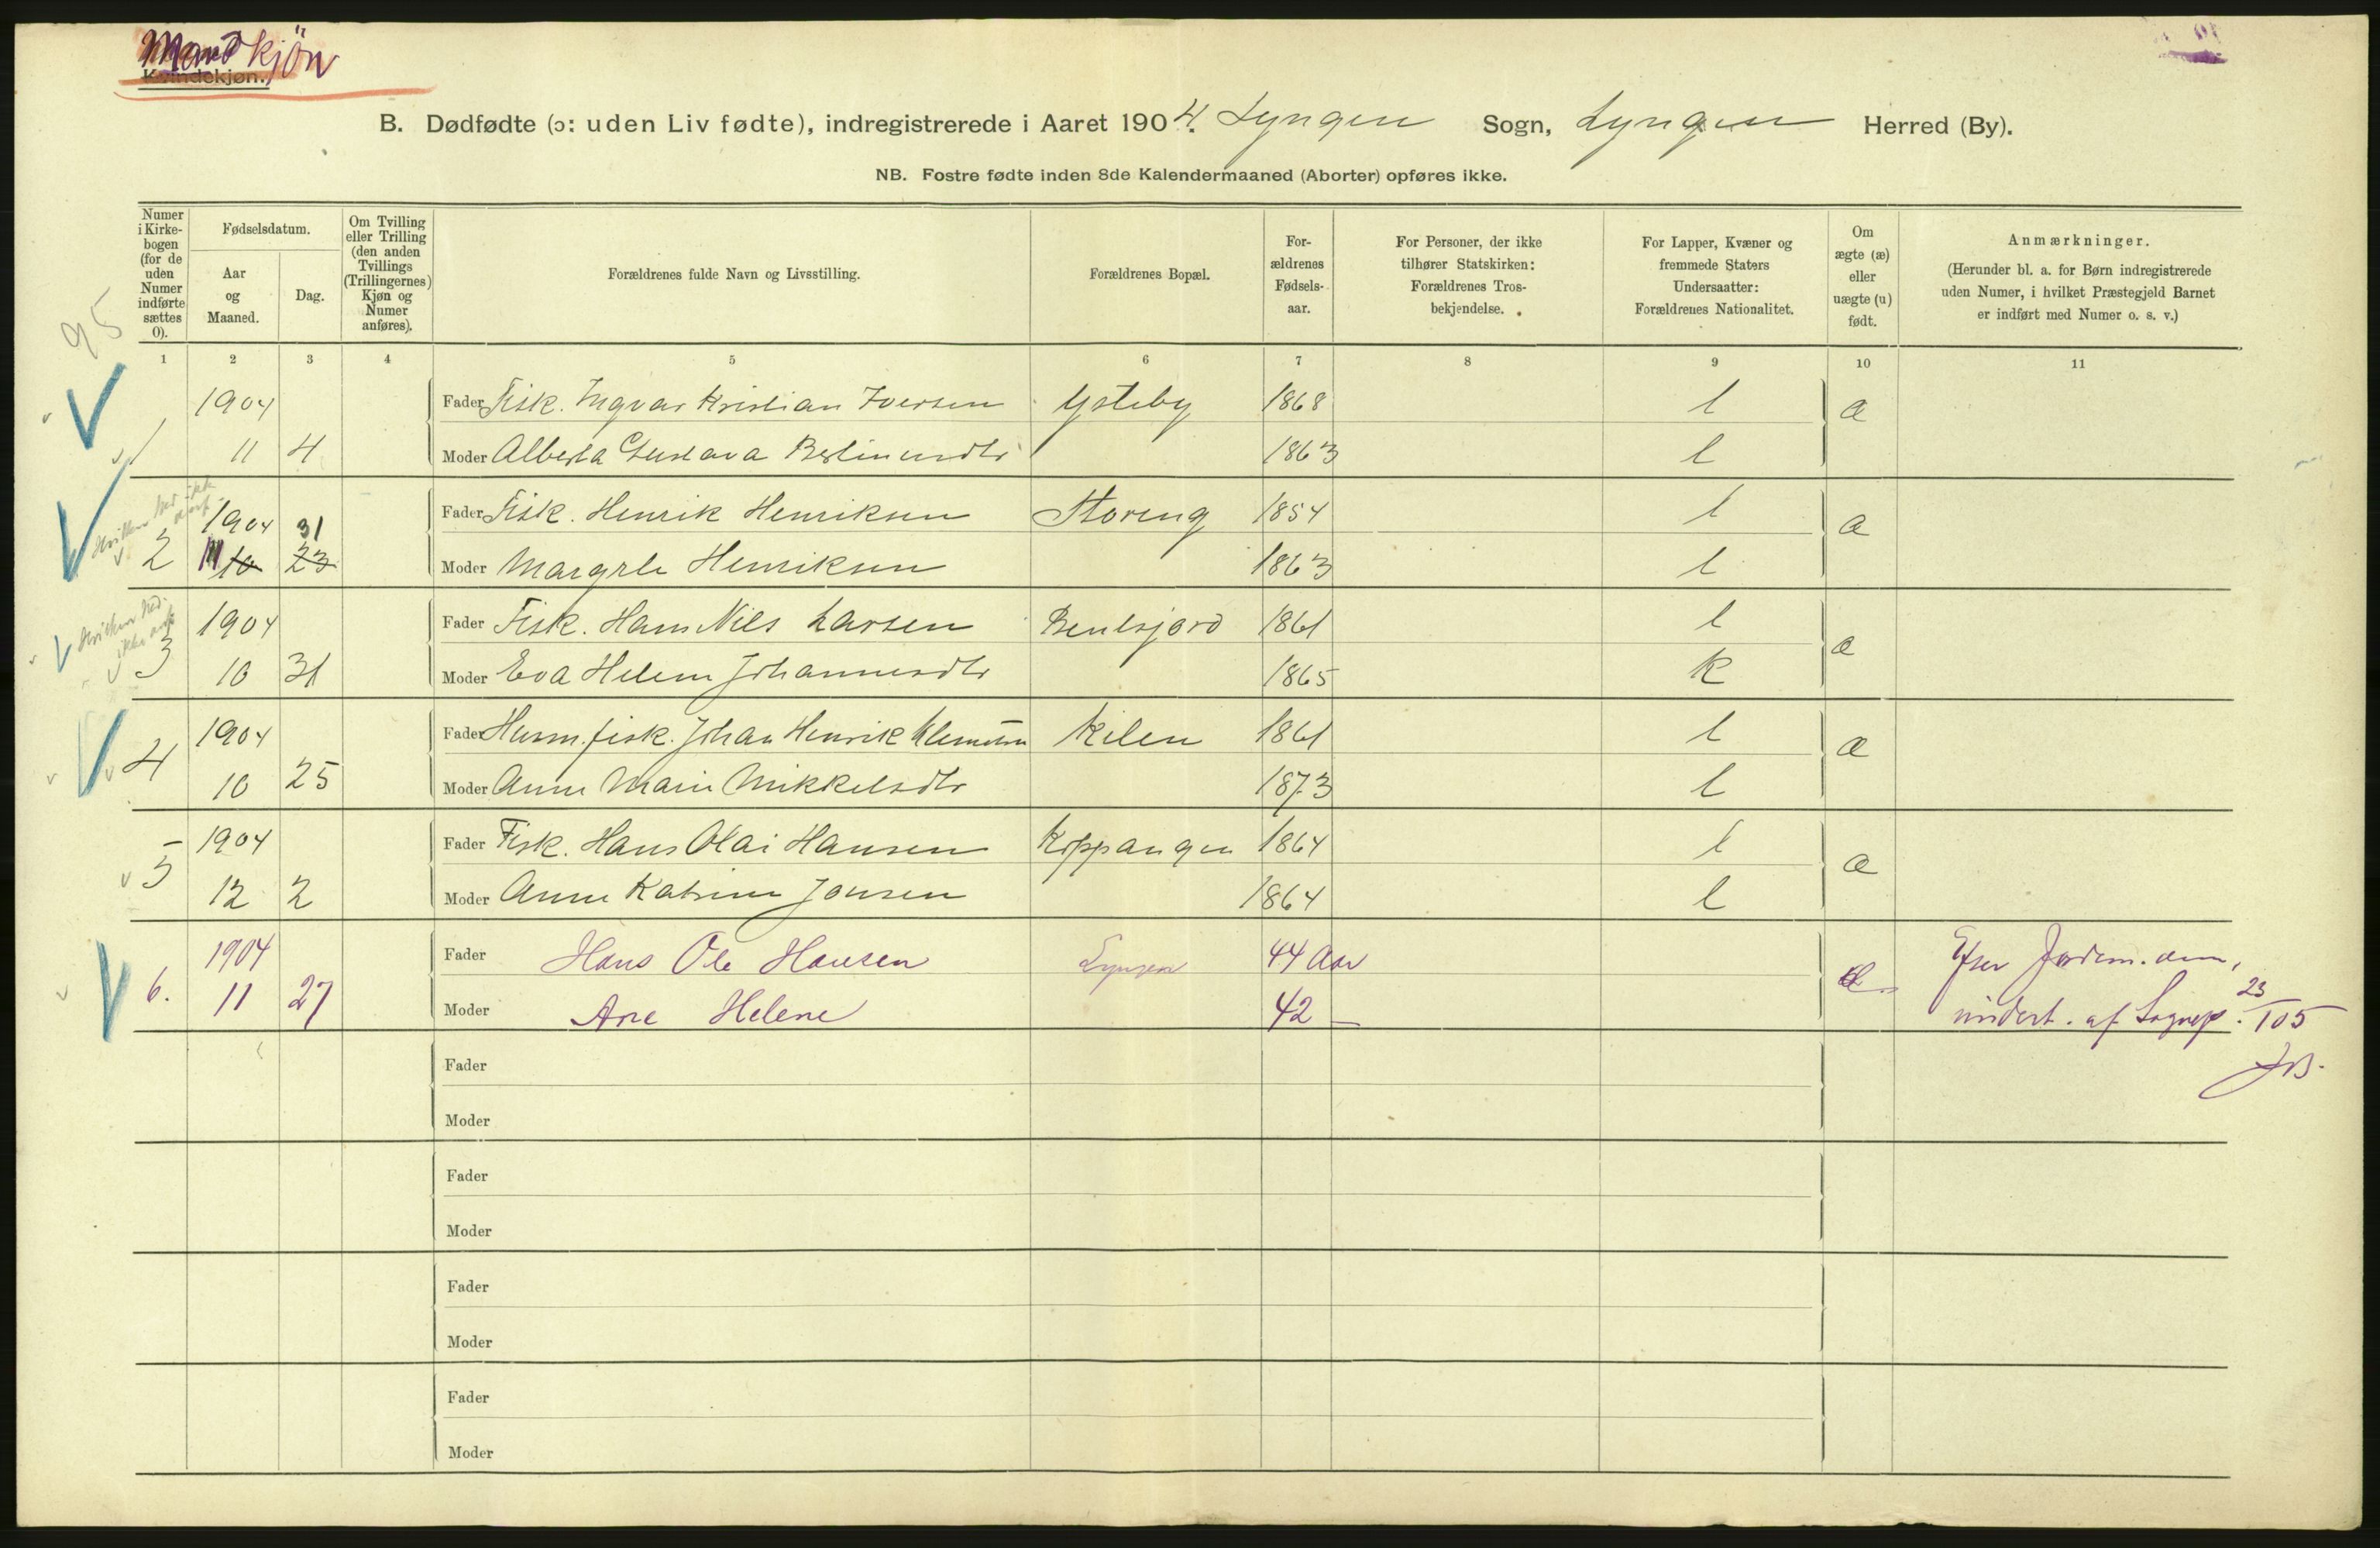 Mandkjön
Kvindekjøn.
B. Dødfødte (ɔ: uden Liv fødte), indregistrerede i Aaret 1904. Lyngen Sogn, Lyngen Herred (By).
NB. Fostre fødte inden 8de Kalendermaaned (Aborter) opføres ikke.
Numer i Kirkebogen (for de uden Numer indførte sættes 0).
Fødselsdatum.
Aar og Maaned.
Dag.
Om Tvilling eller Trilling (den anden Tvillings (Trillingernes) Kjøn og Numer anføres).
Forældrenes fulde Navn og Livsstilling.
Forældrenes Bopæl.
Forældrenes Fødselsaar.
For Personer, der ikke tilhører Statskirken: Forældrenes Trosbekjendelse.
For Lapper, Kvæner og fremmede Staters Undersaatter: Forældrenes Nationalitet.
Om ægte (æ) eller uægte (u) født.
Anmærkninger.
(Herunder bl. a. for Børn indregistrerede uden Numer, i hvilket Præstegjeld Barnet er indført med Numer o. s. v.)
95
1 2 3 4 5 6 7 8 9 10 11
1904 Fader Fisk. Ingvar Kristian Iversen Ysteby 1868 l æ
1 11 4 Moder Alberta Gustava Bertinusdtr 1863 l
1904 31 Fader Fisk. Henrik Henriksen Storeng 1854 l æ
2 11 10 23 Moder Margrete Henriksen 1863 l
Hvilken Ned. ikke anf.
1904 Fader Fisk. Hans Nils Larsen Bentsjord 1861 l æ
3 10 31 Moder Eva Helene Johannesdtr 1865 k
1904 Fader Husm. fisk. Johan Henrik Klemetsen Kilen 1861 l æ
4 10 25 Moder Anne Marie Mikkelsdtr 1873 l
1904 Fader Fisk. Hans Olai Hansen Koppangen 1864 l æ
5 12 2 Moder Anne Katrine Jonsen 1864 l
1904 Fader Hans Ole Hansen Lyngen 44 Aar æ Efter Jordm. anm,
6. 11 27 Moder Ane Helene 42 – af Sognep. 23/1 05
JB.
Fader
Moder
Fader
Moder
Fader
Moder
Fader
Moder